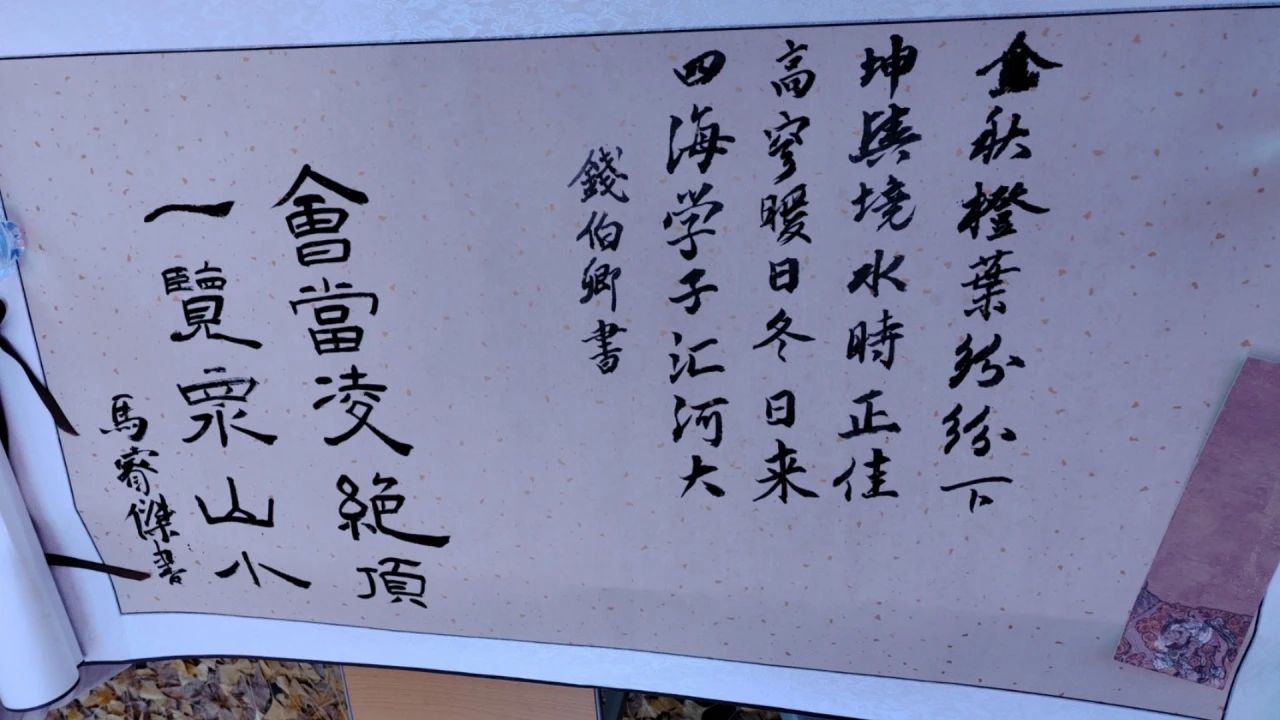 金秋橙葉紛紛下
坤輿境水時正佳
高穹暖日冬日来
四海学子汇河大
錢伯卿書
會當凌絕頂
一覽眾山小
馬睿傑書